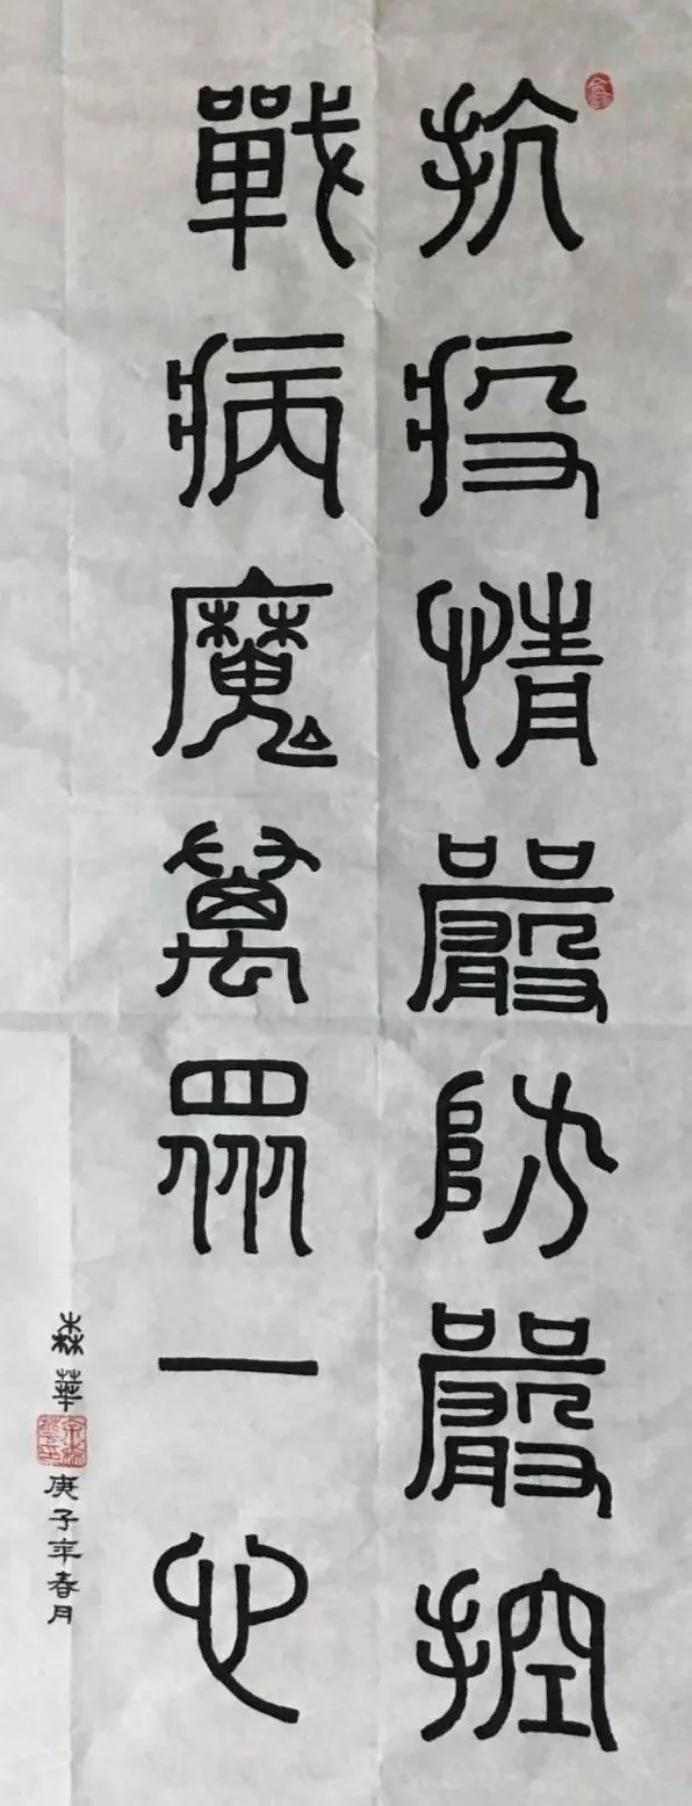 抗疫情嚴防嚴控
戰病魔萬眾一心
森華
庚子年春月